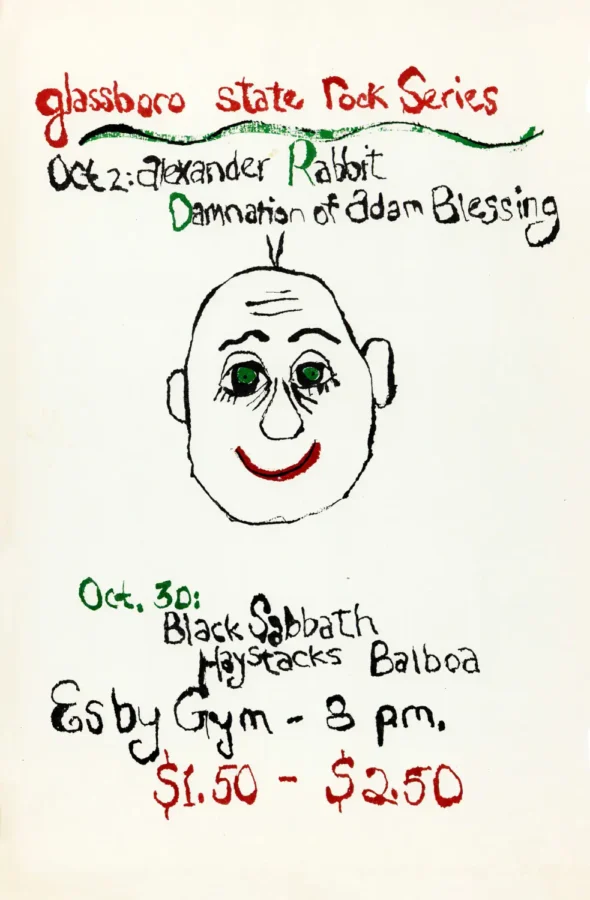 glassboro state rock Series
Oct 2: alexander Rabbit
Damnation of adam Blessing
Oct. 30:
Black Sabbath
Haystacks Balboa
Esby Gym - 8 pm.
$1.50 - $2.50